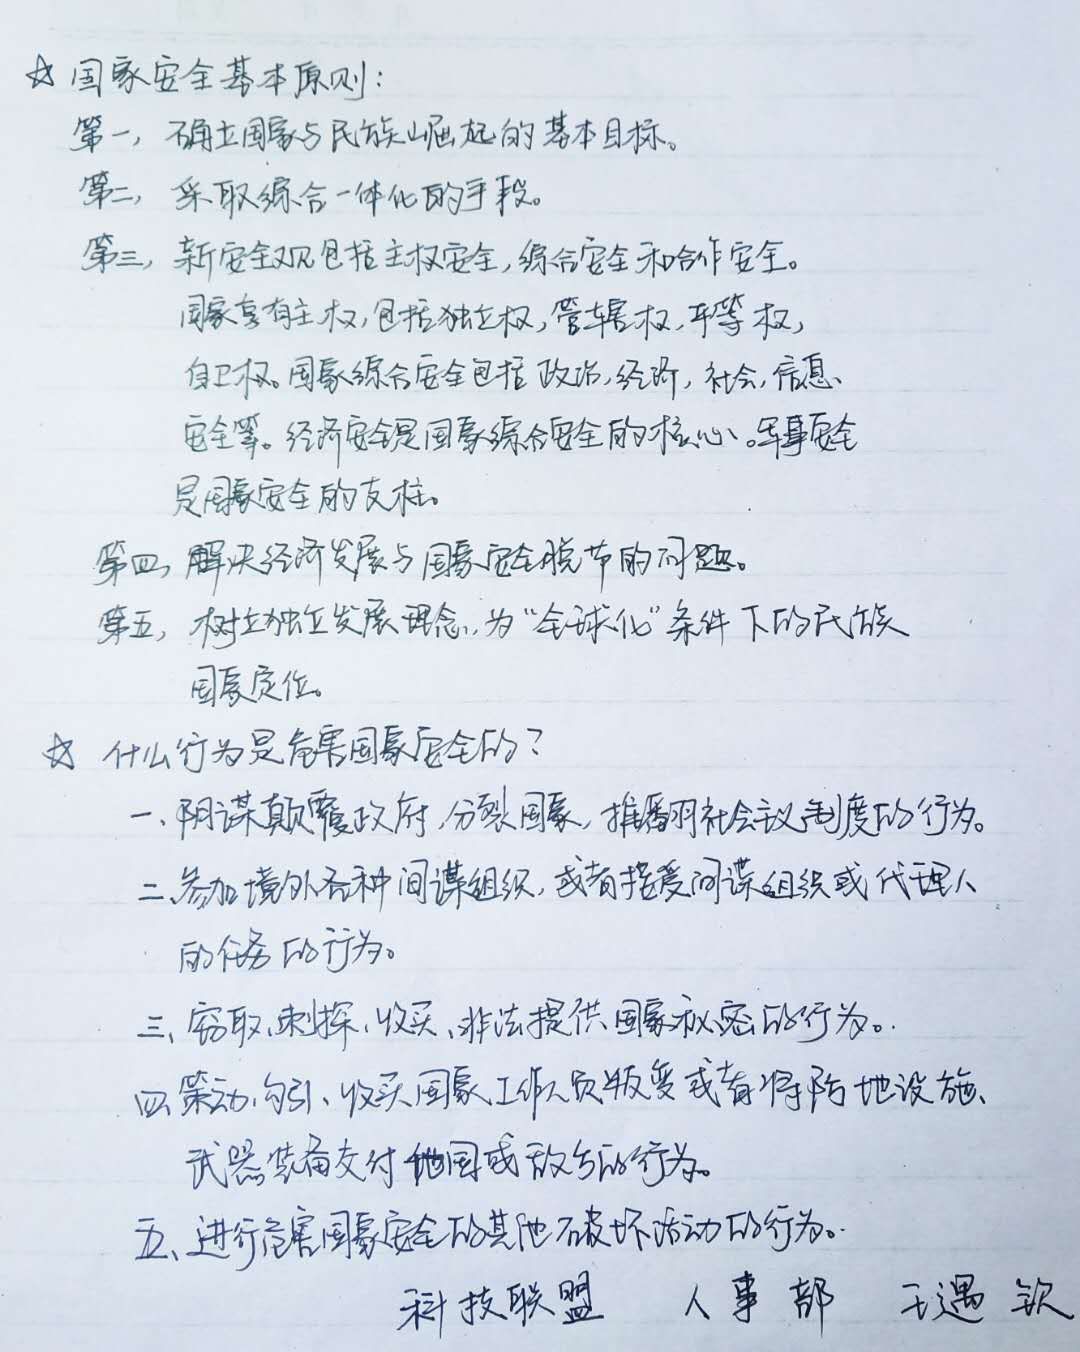 ☆ 国家安全基本原则：
第一，确立国家与民族崛起的基本目标。
第二，采取综合一体化的手段。
第三，新安全观包括主权安全，综合安全和合作安全。
国家享有主权，包括独立权，管辖权，平等权，
自卫权。国家综合安全包括政治，经济，社会，信息、
安全等。经济安全是国家综合安全的核心。军事安全
是国家安全的支柱。
第四，解决经济发展与国家安全脱节的问题。
第五，树立独立发展理念，为“全球化”条件下的民族
国家定位。
☆ 什么行为是危害国家安全的？
一、阴谋颠覆政府，分裂国家，推翻社会主义制度的行为。
二、参加境外各种间谍组织，或者接受间谍组织或代理人
的任务的行为。
三、窃取、刺探、收买、非法提供国家秘密的行为。
四、策动、勾引、收买国家工作人员叛变或者将防地设施、
武器装备交付他国或敌方的行为。
五、进行危害国家安全的其他破坏活动的行为。
科技联盟 人事部 王遇钦